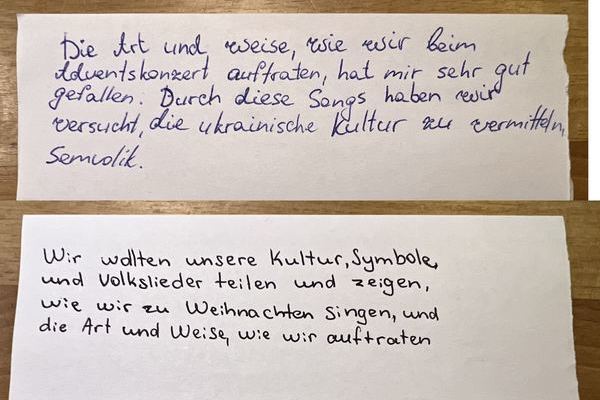 Die Art und weise, wie wir beim
Adventskonzert auftraten, hat mir sehr gut
gefallen. Durch diese Songs haben wir
versucht, die ukrainische Kultur zu vermitteln,
Semvolik.
Wir wollten unsere Kultur, Symbole,
und Volkslieder teilen und zeigen,
wie wir zu Weihnachten singen, und
die Art und Weise, wie wir auftraten